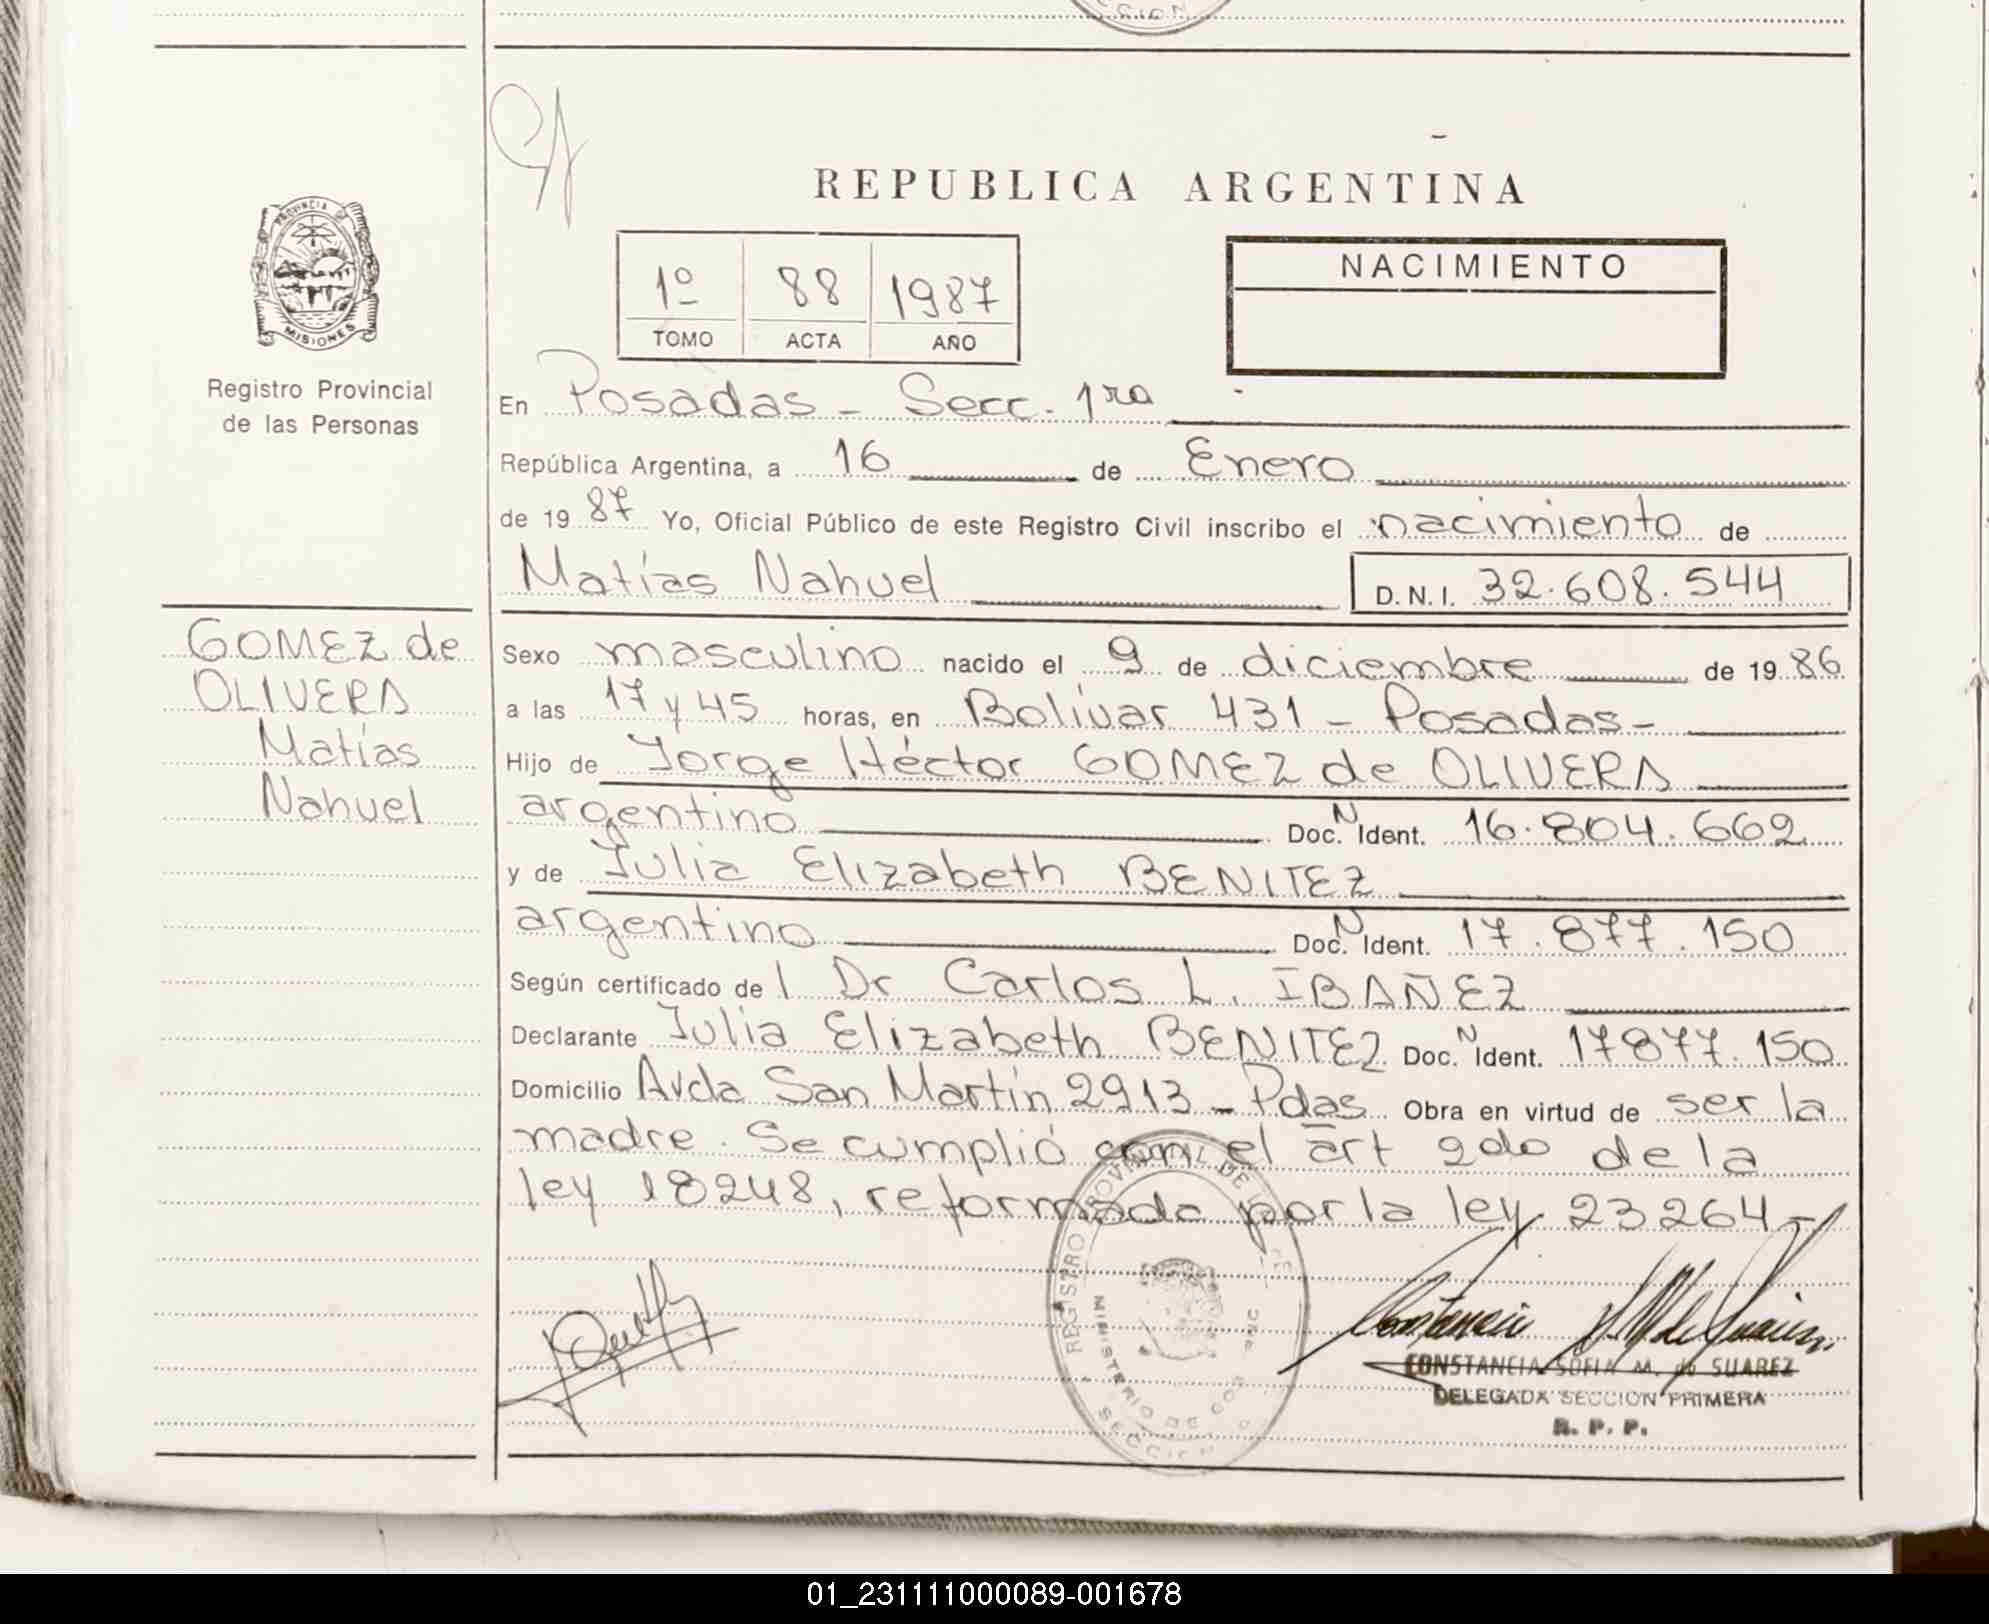 CCION
REPUBLICA ARGENTINA
PROVINCIA DE
MISIONES
Registro Provincial
de las Personas
1º 88 1987
TOMO ACTA AÑO
NACIMIENTO
En Posadas - Secc. 1ra
República Argentina, a 16 de Enero
de 1987 Yo, Oficial Público de este Registro Civil inscribo el nacimiento de
Matías Nahuel D.N.I. 32.608.544
GOMEZ de
OLIVERA
Matías
Nahuel
Sexo masculino nacido el 9 de diciembre de 1986
a las 17 y 45 horas, en Bolívar 431 - Posadas-
Hijo de Jorge Héctor GOMEZ de OLIVERA
argentino Doc. N Ident. 16.804.662
y de Julia Elizabeth BENITEZ
argentino Doc. N Ident. 17.877.150
Según certificado del Dr Carlos L. IBAÑEZ
Declarante Julia Elizabeth BENITEZ Doc. N Ident. 17877.150
Domicilio Avda San Martín 2913 - Pdas Obra en virtud de ser la
madre. Se cumplió con el art 2do de la
ley 18248, reformada por la ley 23264-
REGISTRO PROVINCIAL DE
MINISTERIO DE GOB
SECCION
CONSTANCIA SOFIA M. de SUAREZ
DELEGADA SECCION PRIMERA
R. P. P.
01_231111000089-001678